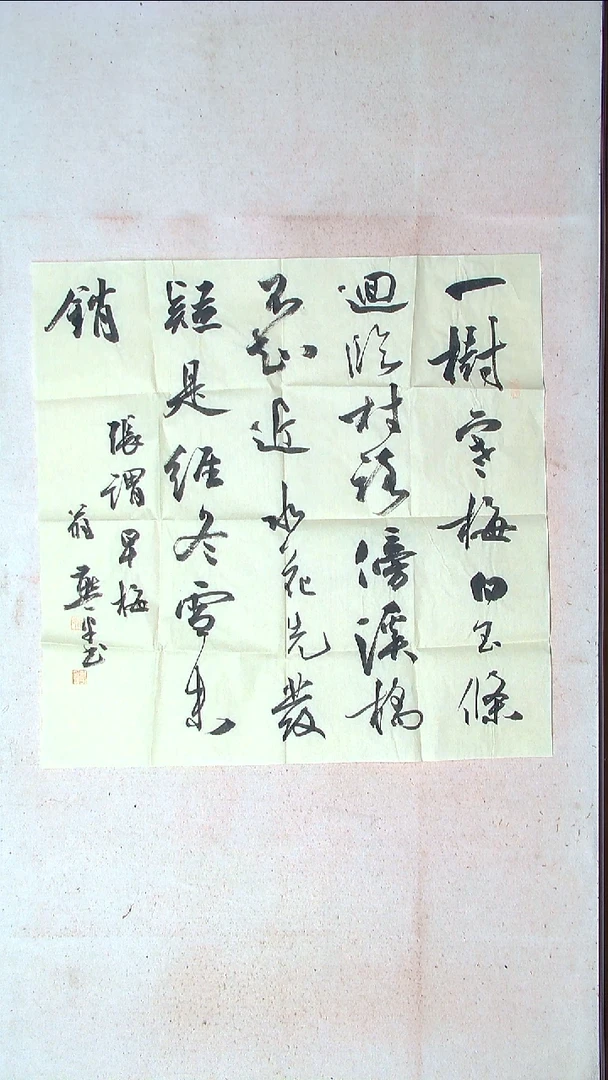 一樹寒梅白玉條
迴臨村路傍溪橋
不知近水花先發
疑是經冬雪未
銷
張謂早梅